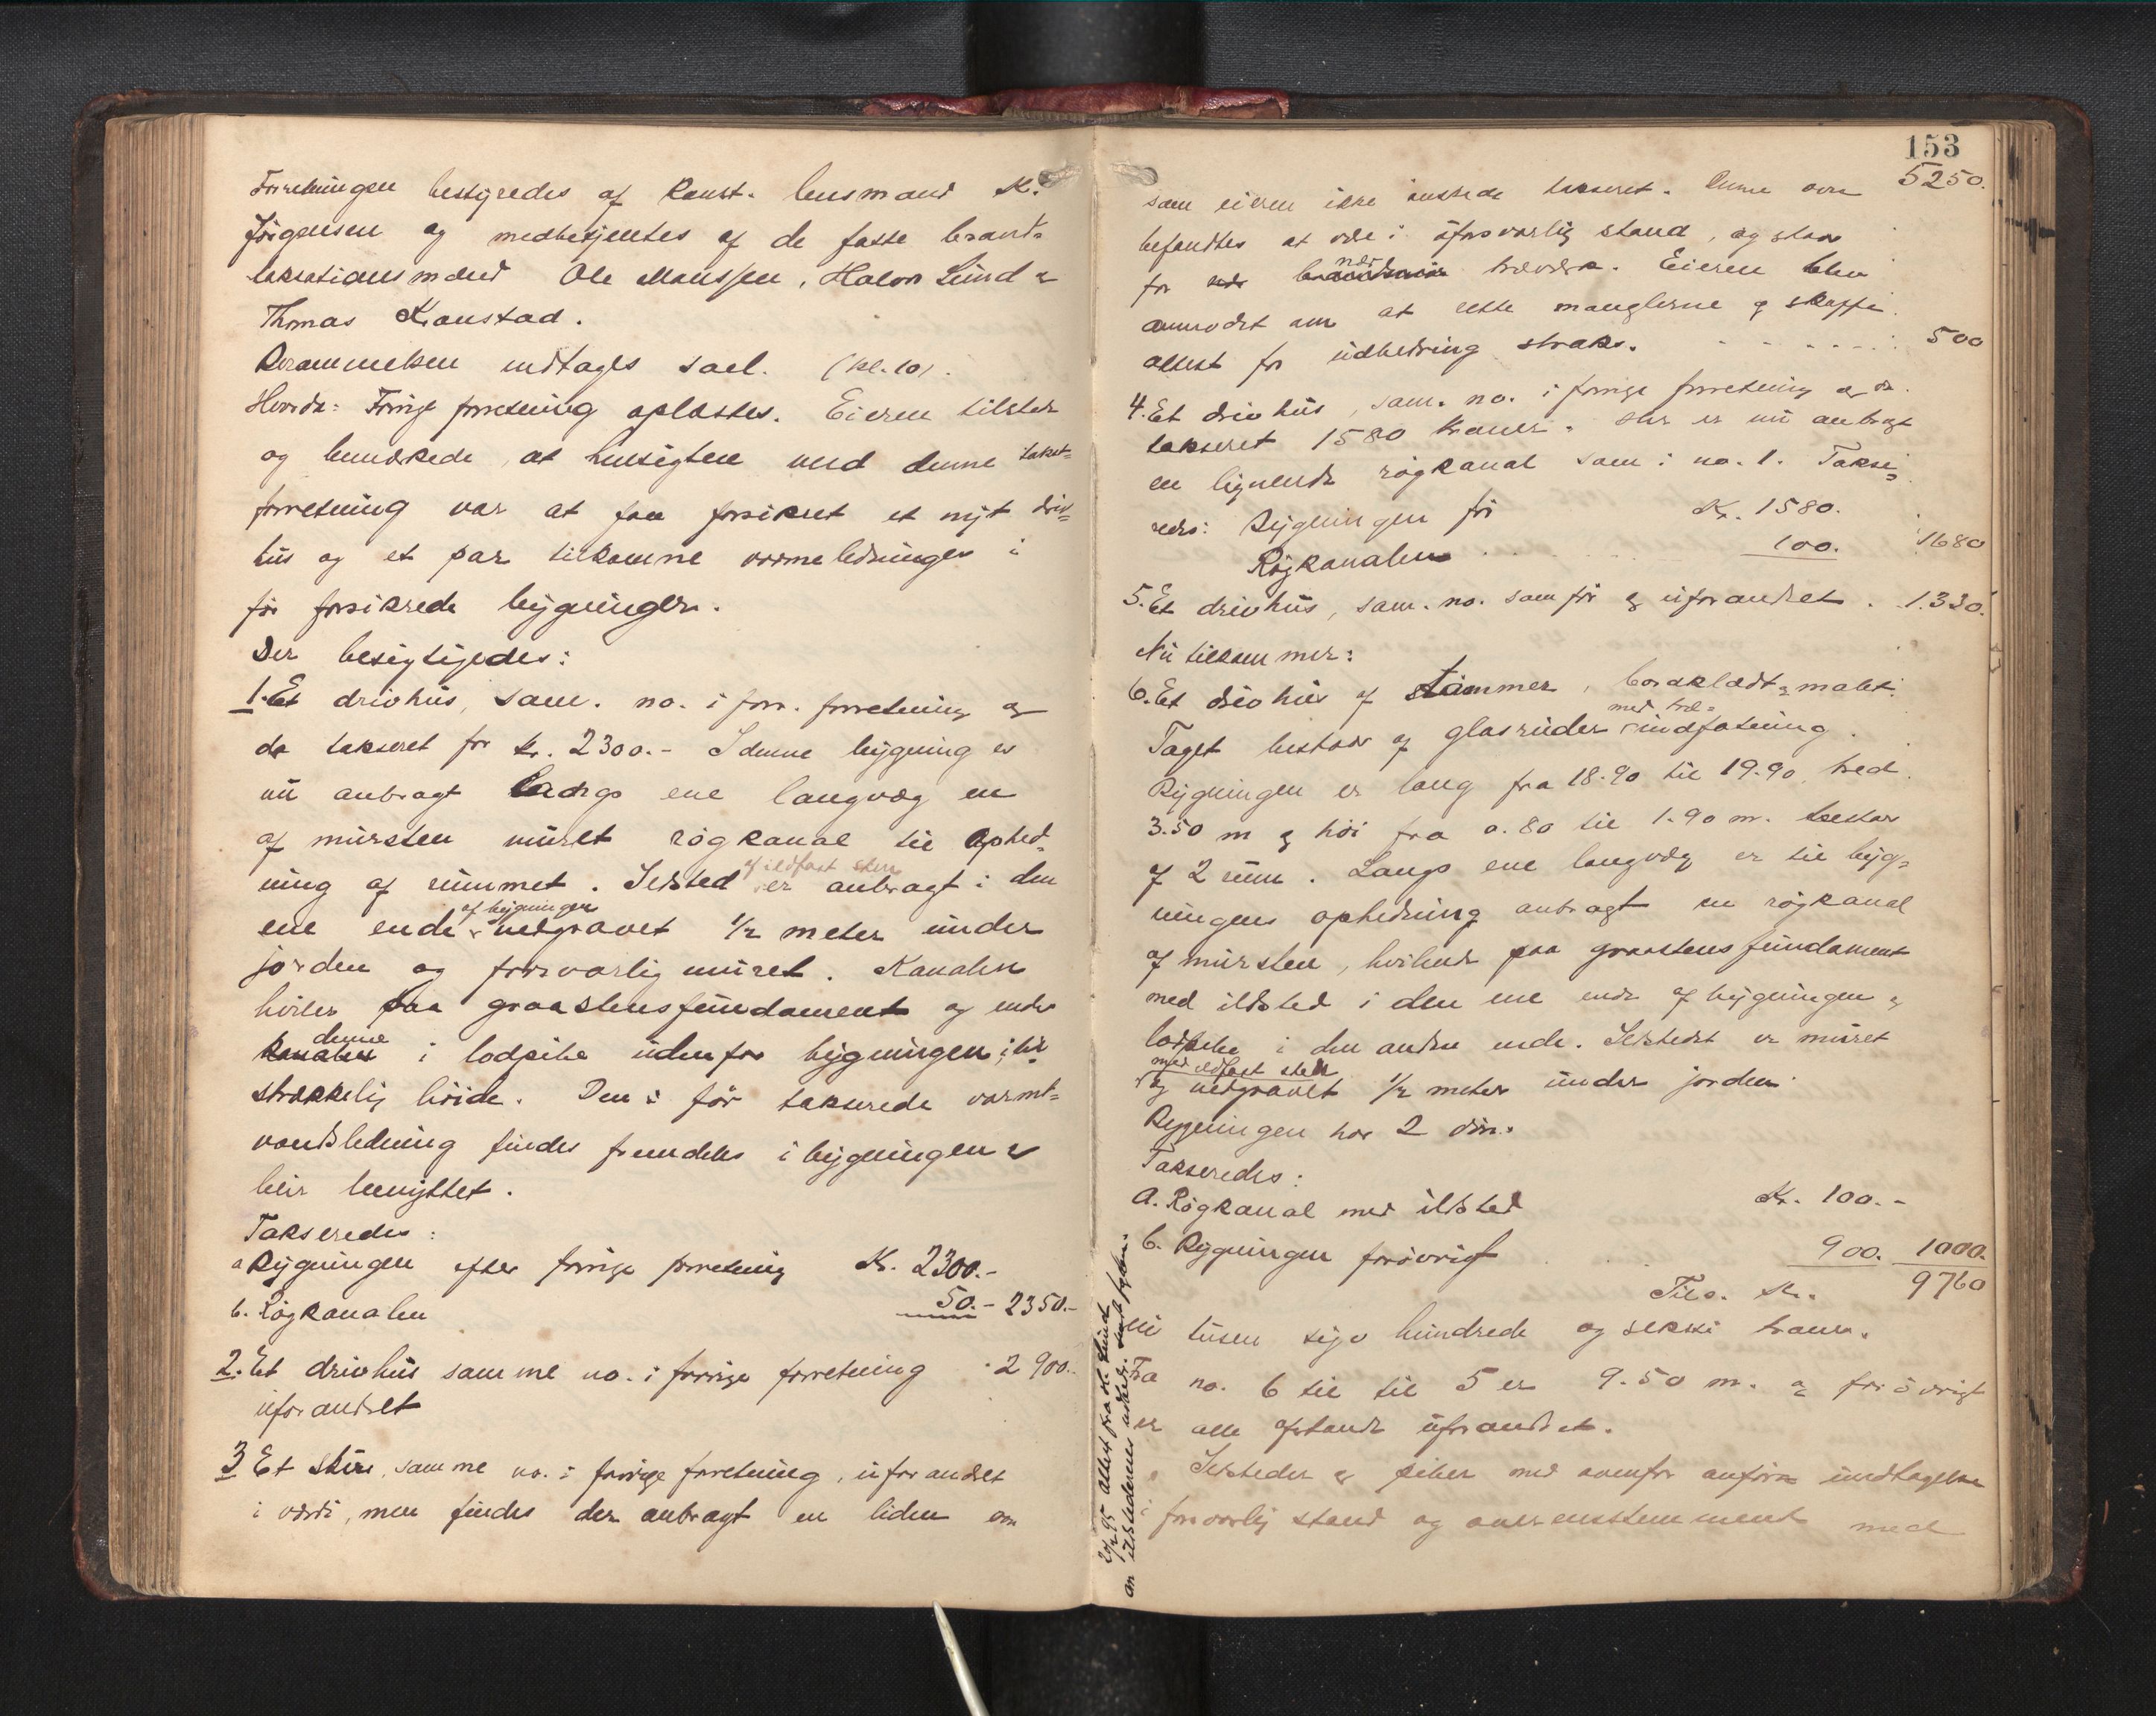 Forretningen bestyredes af konst. lensmand K.
Jörgensen og medbetjentes af de faste brand-
taksationsmænd Ole Monssen, Halvor Lund &
Thomas Kronstad.
Rammelsen indtages saal. (kl. 10).
Hvorda: Forrige forretning oplæstes. Eieren tilstede
og bemærkede, at hensigten med denne takst-
forretning var at faa forsikret et nyt driv-
hus og et par tilkomne varmeledninger i
før forsikrede bygninger.
Der besigtigedes:
1. Et drivhus, sam. no. i forr. forretning og
da takseret for kr. 2300.- I denne bygning er
nu anbragt langs ene langvæg en
af mursten muret røgkanal til ophed-
ning af rummet. Ildsted af ildfast sten er anbragt i den
ene ende af bygningen nedgravet 1/2 meter under
jorden og forsvarlig muret. Kanalen
hviler paa graastensfundament og ender
denne i lodpibe udenfor bygningen i til-
strækkelig höide. Den i før takserede varmt-
vandsledning findes fremdeles i bygningen &
blir benyttet.
Takseredes:
a Bygningen efter forrige forretning Kr. 2300.-
b. Røgkanalen 50.- 2350.-
2. Et drivhus samme no. i forrige forretning 2900.-
uforandret
3 Et skur, samme no. i forrige forretning, uforandret
i værdi, men findes der anbragt en liden ovn
153
5250.
som eieren ikke ønskede takseret. Denne ovn
befandtes at være i uforsvarlig stand, og staar
for nær træværk. Eieren blev
anmodet om at rette manglerne & skaffe
attest for udbedring straks. 500
4. Et drivhus, sam. no. i forrige forretning og da
takseret 1580 kroner. Her er nu anbragt
en lignende røgkanal som i no. 1. Takse-
redes: Bygningen før Kr. 1580.
Røgkanalen 100. 1680
5. Et drivhus, sam. no. som før & uforandret. 1.330.
Nu tilkommer:
6. Et drivhus af tømmer, bordklædt & malet.
Taget bestaar af glasruder med træ-indfatning.
Bygningen er lang fra 18.90 til 19.90, bred
3.50 m & høi fra 0.80 til 1.90 m. bestaar
af 2 rum. Langs ene langvæg er til byg-
ningens ophedning anbragt en røgkanal
af mursten, hvilende paa graastensfundament
med ildsted i den ene ende af bygningen &
lodpibe i den anden ende. Ildstedet er muret
med ildfast sten
og nedgravet 1/2 meter under jorden.
Bygningen har 2 döre.
Takseredes:
a. Røgkanal med ildsted Kr. 100.-
b. Bygningen forøvrigt 900. 1000.
Tils. Kr. 9760
ni tusen syv hundrede og seksti kroner.
Fra no. 6 til til 5 er 9.50 m. og forøvrigt
er alle afstande uforandret.
Ildsteder & piber med ovenfor anførte undtagelse
i forsvarlig stand og overensstemmende med
20/2 95 Attest fra H. Lund
om ildstedernes udbedr.